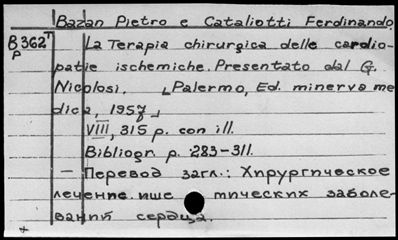 Bazan Pietro e Cataliotti Ferdinando
B 362 T
p
La Terapia chirurgica delle cardio-
patie ischemiche. Presentato dal G.
Nicolosi. Palermo, Ed. minerva me
dica, 1957
VIII, 315 p. con ill.
Bibliogr p. 283-311.
— Перевод загл.: Хирургическое
лечение ише тических заболе-
ваний сердца.